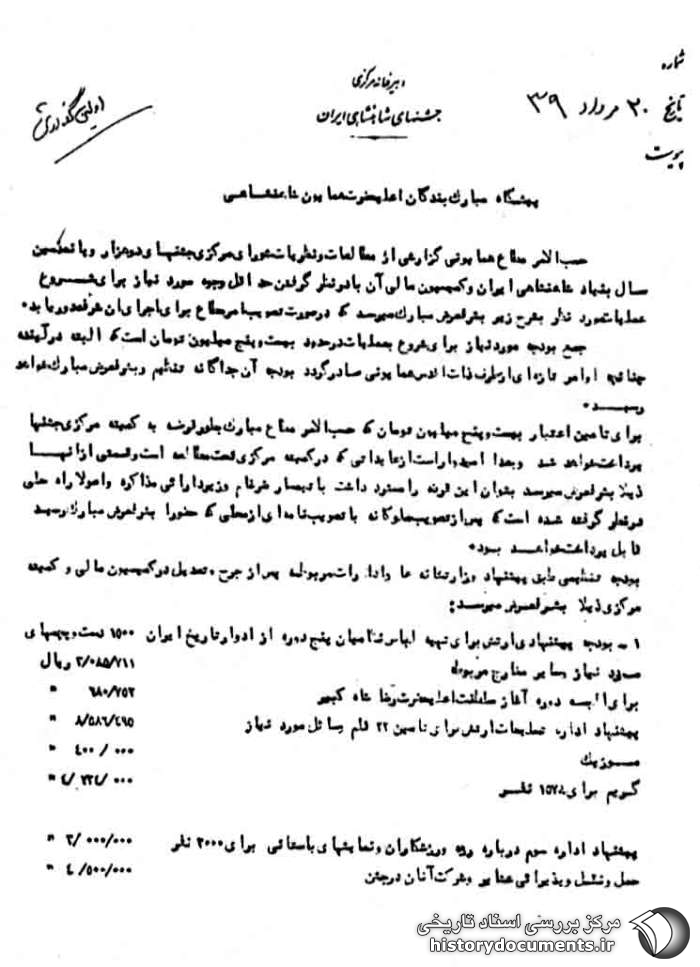 شماره
تاریخ ۲۰ مرداد ۳۹
پیوست
دبیرخانه مرکزی
جشنهای شاهنشاهی ایران
پیشگاه مبارك بندگان اعلیحضرت همایون شاهنشاهی
حسب الامر مطاع همایونی گزارشی از مطالعات و نظریات شورای مرکزی جشنهای دو هزار و پانصدمین
سال بنیاد شاهنشاهی ایران و کمیسیون مالی آن با در نظر گرفتن حداقل وجوه مورد نیاز برای شروع
عملیات مورد نظر بشرح زیر بشرفعرض مبارك میرسد که در صورت تصویب امر مطاع برای اجرای آن شرفصدور یابد.
جمع بودجه مورد نیاز برای شروع بعملیات در حدود بیست و پنج میلیون تومان است که البته در آینده
چنانچه اوامر تازه ای از طرف ذات اقدس همایونی صادر گردد بودجه آن جداگانه تنظیم و بشرفعرض مبارك خواهد
رسید.
برای تامین اعتبار بیست و پنج میلیون تومان که حسب الامر مطاع مبارك بطور قرضه به کمیته مرکزی جشنها
پرداخت خواهد شد و بعدا امیدوار است از عایداتی که در کمیته مرکزی تحت مطالعه است و قسمتی از آنها
ذیلا بشرفعرض میرسد بتوان این قرضه را مسترد داشت با تیمسار ضرغام وزیر دارائی مذاکره و اصولا راه حلی
در نظر گرفته شده است که پس از تصویب ملوکانه با تصویب نامه ای از محلی که حضورا بشرفعرض مبارك رسید
قابل پرداخت خواهد بود.
بودجه تنظیمی طبق پیشنهاد وزارتخانه ها و ادارات مربوطه پس از جرح و تعدیل در کمیسیون مالی و کمیته
مرکزی ذیلا بشرفعرض میرسد:
۱ ـ بودجه پیشنهادی ارتش برای تهیه لباس نظامیان پنج دوره از ادوار تاریخ ایران ۱۵۰۰ دست و چیزهای
مورد نیاز و سایر مخارج مربوطه ۲/۰۸۵/۷۱۱ ریال
برای البسه دوره آغاز سلطنت اعلیحضرت رضا شاه کبیر ۶۸۰/۲۵۲ "
پیشنهاد اداره تسلیحات ارتش برای تامین ۲۲ قلم وسائل مورد نیاز ۸/۵۸۶/۴۹۵ "
موزیك ۴۰۰/۰۰۰ "
گریم برای ۱۵۷۸ نفر ۰۰۰ "
پیشنهاد اداره سوم درباره رژه ورزشکاران و نمایشهای باستانی برای ۳۰۰۰ نفر ۲/۰۰۰/۰۰۰ "
حمل و نقل و پذیرائی عشایر و شرکت آنان در جشن ۴/۵۰۰/۰۰۰ "
مرکز بررسی اسناد تاریخی
historydocuments.ir